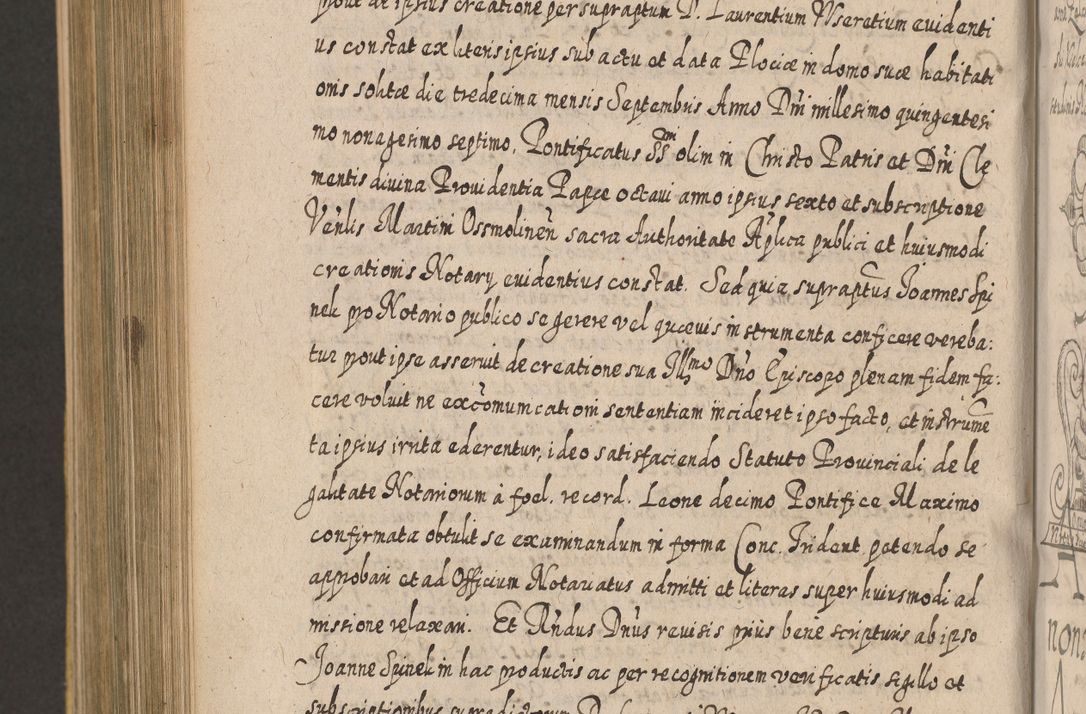 prout de ipsius creatione per supraptum D. Laurentium Wseretium euidenti
us constat ex literis ipsius sub actu et data Plociæ in domo suæ habitati
onis solitæ die tredecima mensis Septembris Anno Dni millesimo quingentesi
mo nonagesimo septimo, Pontificatus SSmi olim in Christo Patris et Dni Cle
mentis diuina Prouidentia Papæ octaui anno ipsius sexto et subscriptione
Venlis Martini Ossmolinen sacra Authoritate Aplica publici et huiusmodi
creationis Notary euidentius constat. Sed quia supraptus Joannes Spi
nek pro Notario publico se gerere vel quæuis instrumenta conficere vereba:
tur prout ipse asseruit de creatione sua Illmo Dno Episcopo plenam fidem fa:
cere voluit ne excomumcationi sententiam incideret ipso facto, et instrume
ta ipsius irrita ederentur, ideo satisfaciendo Statuto Prouinciali de le
galitate Notariorum à foel. record. Leone decimo Pontifice Maximo
confirmata obtulit se examinandum in forma Conc. Trident. petendo se
approbari et ad Officium Notariatus admitti et literas super huiusmodi ad
missione relaxari. Et Rndus Dnus reuisis priùs bene scripturis ab ipso
Joanne Spinek in hac productis ac per recognitionem verificatis sigillo et
subscriptionibus supradictorum